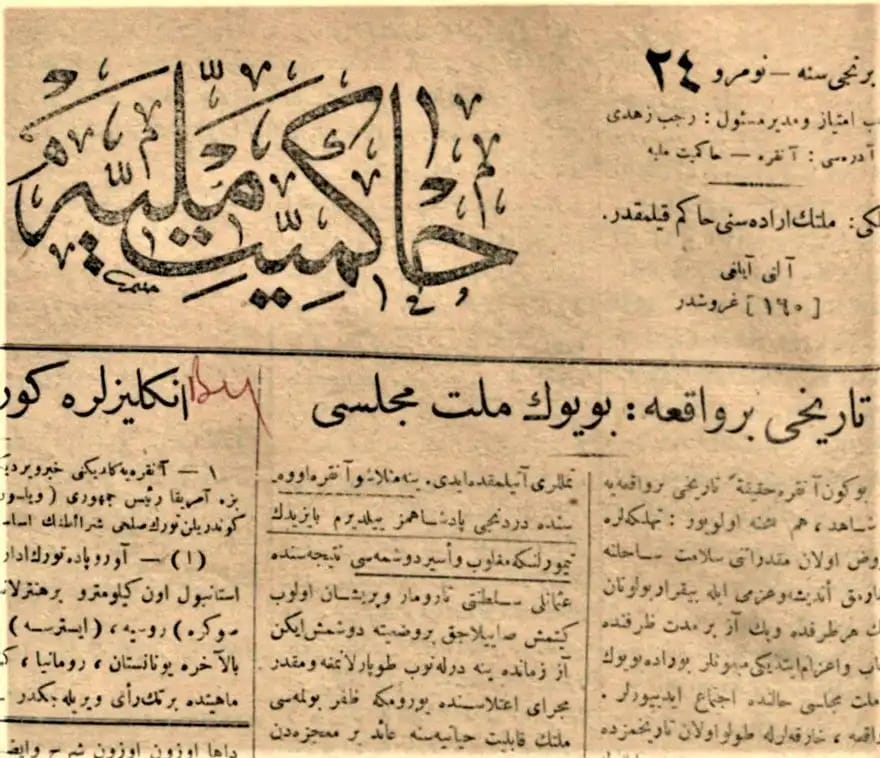 حاكميت مليه
برنجی سنه — نومرو ٢٤
امتياز و مدير مسئول : رجب زهدی
آدره سی : آنقره — حاكميت مليه
ملتك اراده سنی حاكم قيلمقدر.
آلتی آيلغی
[١٦٠] غروشدر
تاريخی بر واقعه : بويوك ملت مجلسی
بوكون آنقره حقيقةً تاريخی بر واقعه يه
شاهد ، هم صحنه اوليور : تهلكه لره
اولان مقدراتی سلامت ساحلنه
انديشه و عزمی ايله بيقرار بولونان
هر طرفده و پك آز بر مدت ظرفنده
و اعزام ايتديكی مبعوثلر بوراده بويوك
ملت مجلسی حالنده اجتماع ايدييورلر .
واقعه ، خارقه لرله طولو اولان تاريخمزده
تمللری آتيلمقده ايدی. ينه مثلا شو آنقره اووه
سنده دردنجی پادشاهمز ييلديرم بايزيدك
تيمورلنكه مغلوب و أسير دوشمه سی نتيجه سنده
عثمانلی سلطنتی تارومار و پريشان اولوب
كتمش صاييلاجق بر وضعيته دوشمش ايكن
آز زمانده ينه درله نوب طوپارلانمغه و مقدر
مجرای اعتلاسنده يورومكه ظفر بولمه سی
ملتك قابليت حياتيه سنه عائد بر معجزه دن
انكليزلره
Bu
١ — آنقره يه كلديكی خبر ويرديك
بزه آمريقا رئيس جمهوری
كوندريلن تورك صلحی شرائطنك اساس
(١) — آوروپاده تورك
استانبول اون كيلومترو بر هنترلا
صوكره ) روسيه ، ( ايسترسه )
بالآخره يونانستان ، رومانيا ،
ماهيتنده بر تك رأی ويريله جكدر
داها اوزون اوزون شرح